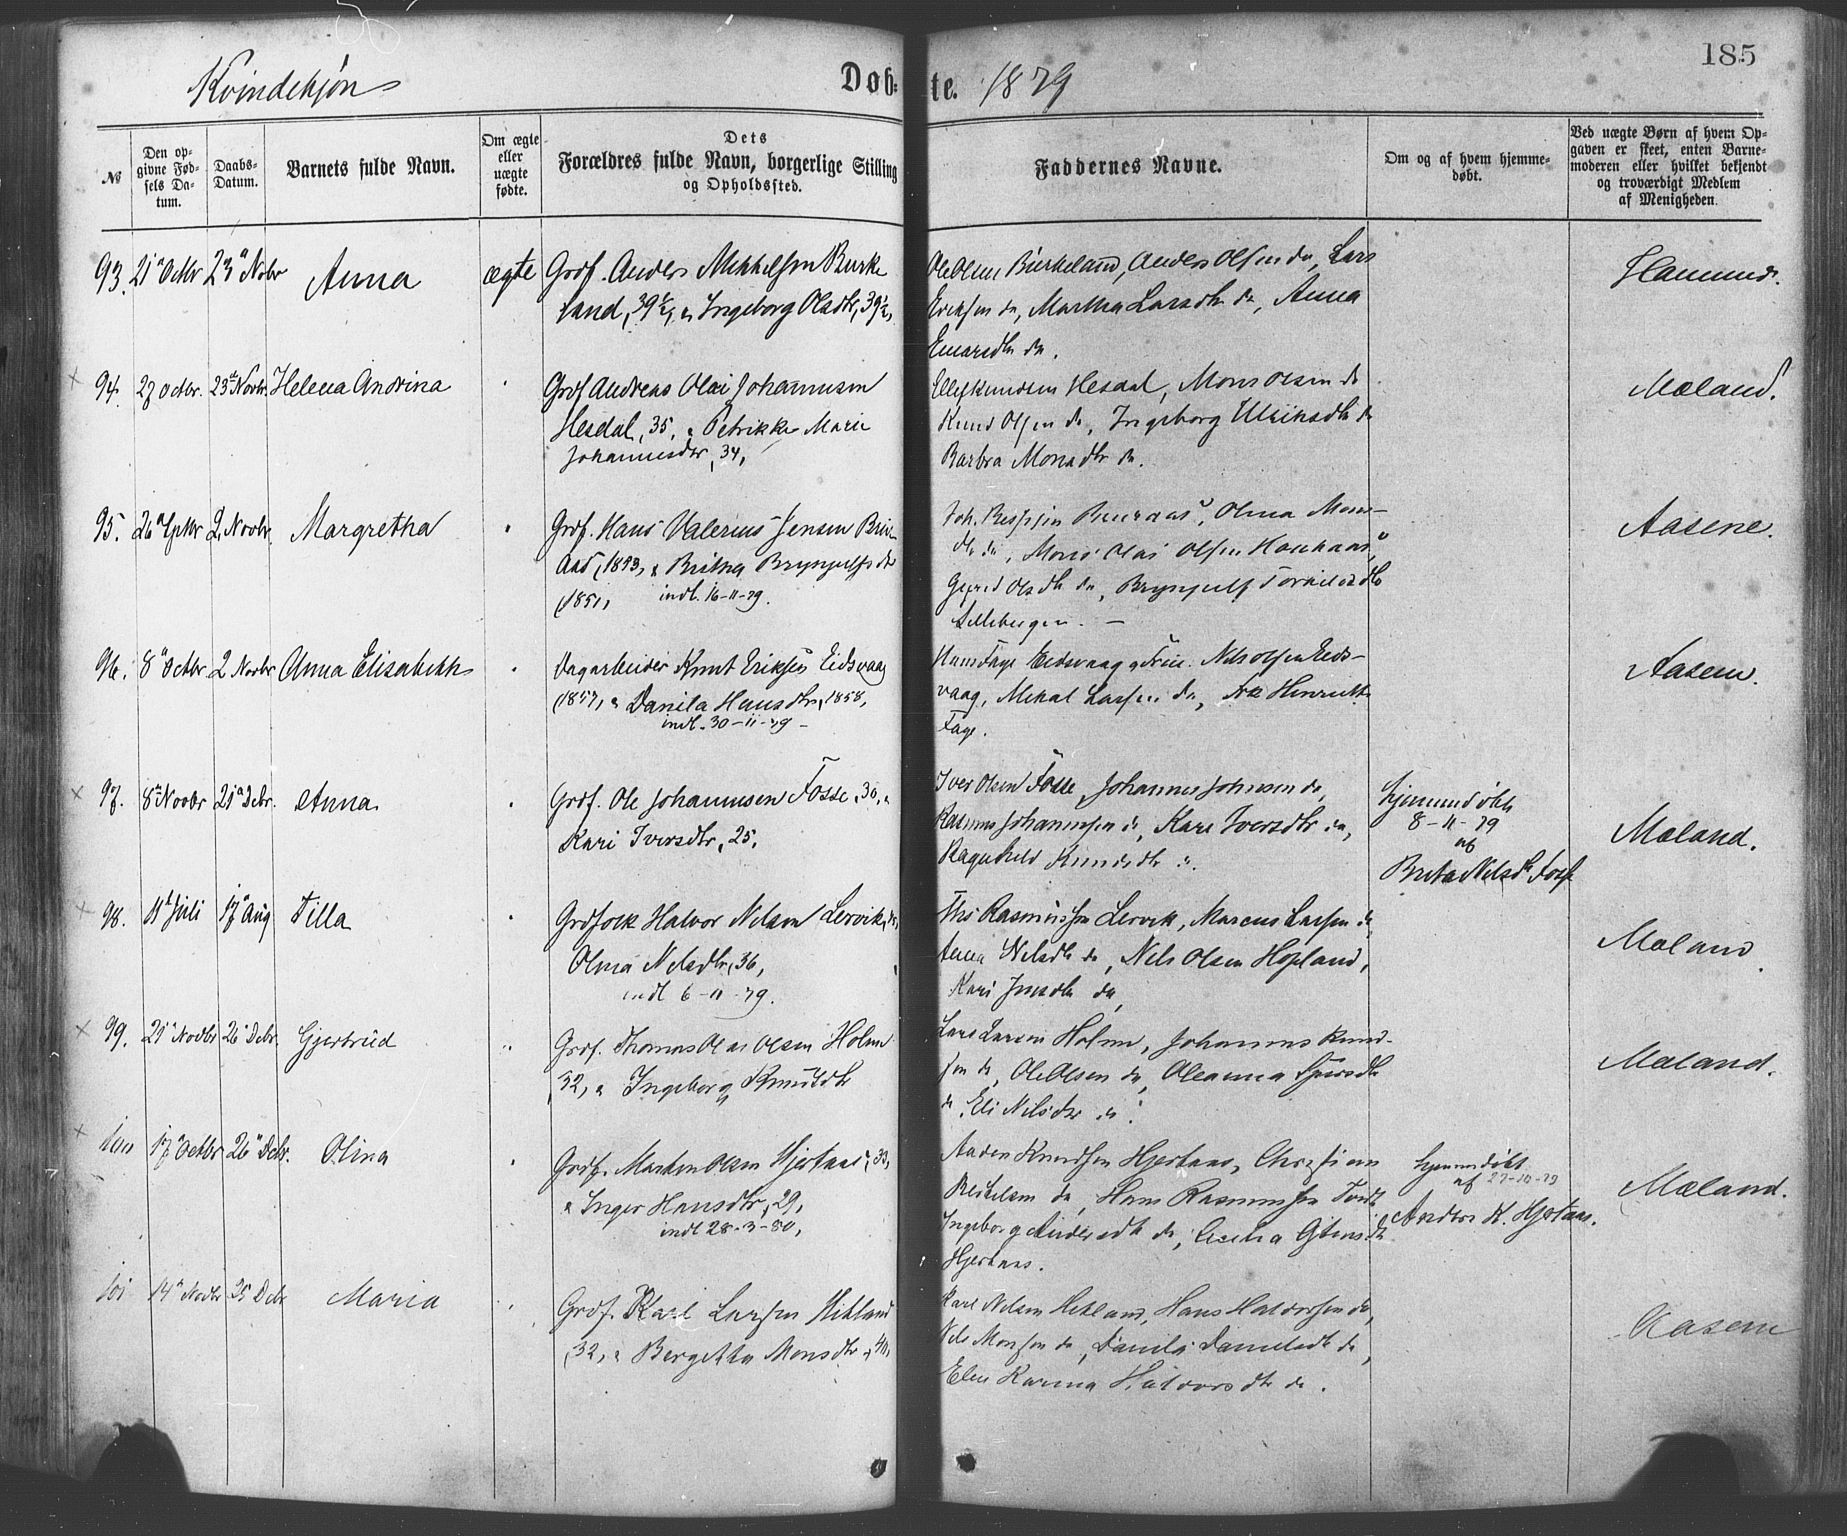 185
Kvindekjøn
Døb=
te. 1879
№
Den op-
givne Fød-
sels Da-
tum.
Daabs-
Datum.
Barnets fulde Navn.
Om ægte
eller
uægte
fødte.
Dets
Forældres fulde Navn, borgerlige Stilling
og Opholdssted.
Faddernes Navne.
Om og af hvem hjemme-
døbt.
Ved uægte Børn af hvem Op-
gaven er skeet, enten Barne-
moderen eller hvilket bekjendt
og troværdigt Medlem
af Menigheden.
93. 21 Octbr 23 Novbr Anna ægte Grdf. Anders Mikkelsen Birke
land, 39½, Ingeborg Olsdtr, 39½,
Ole Olsen Birkeland, Anders Olsen do, Lars
Eriksen do, Martha Larsdtr do, Anna
Einarsdtr do.
94. 27 Octbr. 23 Novbr. Helena Andrina
Grdf Andreas Olai Johannesen
Hesdal, 35, & Petrikke Marie
Johannesdtr, 34,
Ellef Knudsen Hesdal, Mons Olsen do
Knud Olsen do, Ingeborg Ulriksdtr do
Barbra Monsdtr do.
Mæland.
95. 26 Septbr 2 Novbr. Margretha
Grdf. Hans Valerius Jensen
aas, 1843, & Britha Brynjulfsdtr
1851, indl. 16-11-79.
Olina Mons-
dtr do, Mons Olai Olsen
Olsdtr do, Brynjulf
Aasene.
96. 8 Octbr 2 Novbr Anna Elisabeth
Dagarbeider Knut Eriksen Eidsvaag
1857, & Danila Hansdtr, 1858,
indl. 30-11-79
Hans Fage Eidsvaag Nils Olsen Eids-
vaag, Mikal Larsen do, Henriette
Fage.
Aasen.
97. 8 Novbr 21 Debr. Anna
Grdf. Ole Johannesen Fosse, 30, &
Kari Iversdtr, 25,
Iver Olsen Fosse, Johannes Johnsen do,
Rasmus Johannesen do, Kari Iversdtr do,
Ragnhild Knudsdtr do.
hjemmedøbt
8-11-79
af
Brita Nilsdtr Fosse
Mæland.
98. 11 Juli 17 Aug Tilla
Halvor Nilsen Lervik,
Olina Nilsdtr, 36,
indl 6-11-79.
Rasmussen Lervik, Marcus Larsen do,
Anna Nilsdtr do, Nils Olsen Hopland,
Kari Jensdtr do,
Mæland.
99. 21 Novbr 26 Debr Gjertrud
Grdf. Thomas Olai Olsen Holme
32, & Ingeborg Knudsdtr
Lars Larsen Holme, Johannes Knud-
sen do, Ole Olsen do, Oleanna
do, Eli Nilsdtr do.
Mæland.
100 17 Octbr 26 Debr. Olina
Grdf. Morten Olsen Hjertaas, 33,
& Inger Hansdtr, 29,
indl 28-3-80,
Knudsen Hjertaas, Christian
do, Hans Rasmussen
Ingeborg Andersdtr do,
Hjertaas.
hjemmedøbt
af 27-10-79
K. Hjertaas.
Mæland.
101 14 Novbr 25 Debr Maria
Grdf. Karl Larsen Hikland
32, & Bergetha Monsdtr, 40,
Karl Nilsen Hikland, Hans Halvorsen do,
Nils Monsen do, Danila Danielsdtr do,
Elen Karina Halvorsdtr do.
Aasene